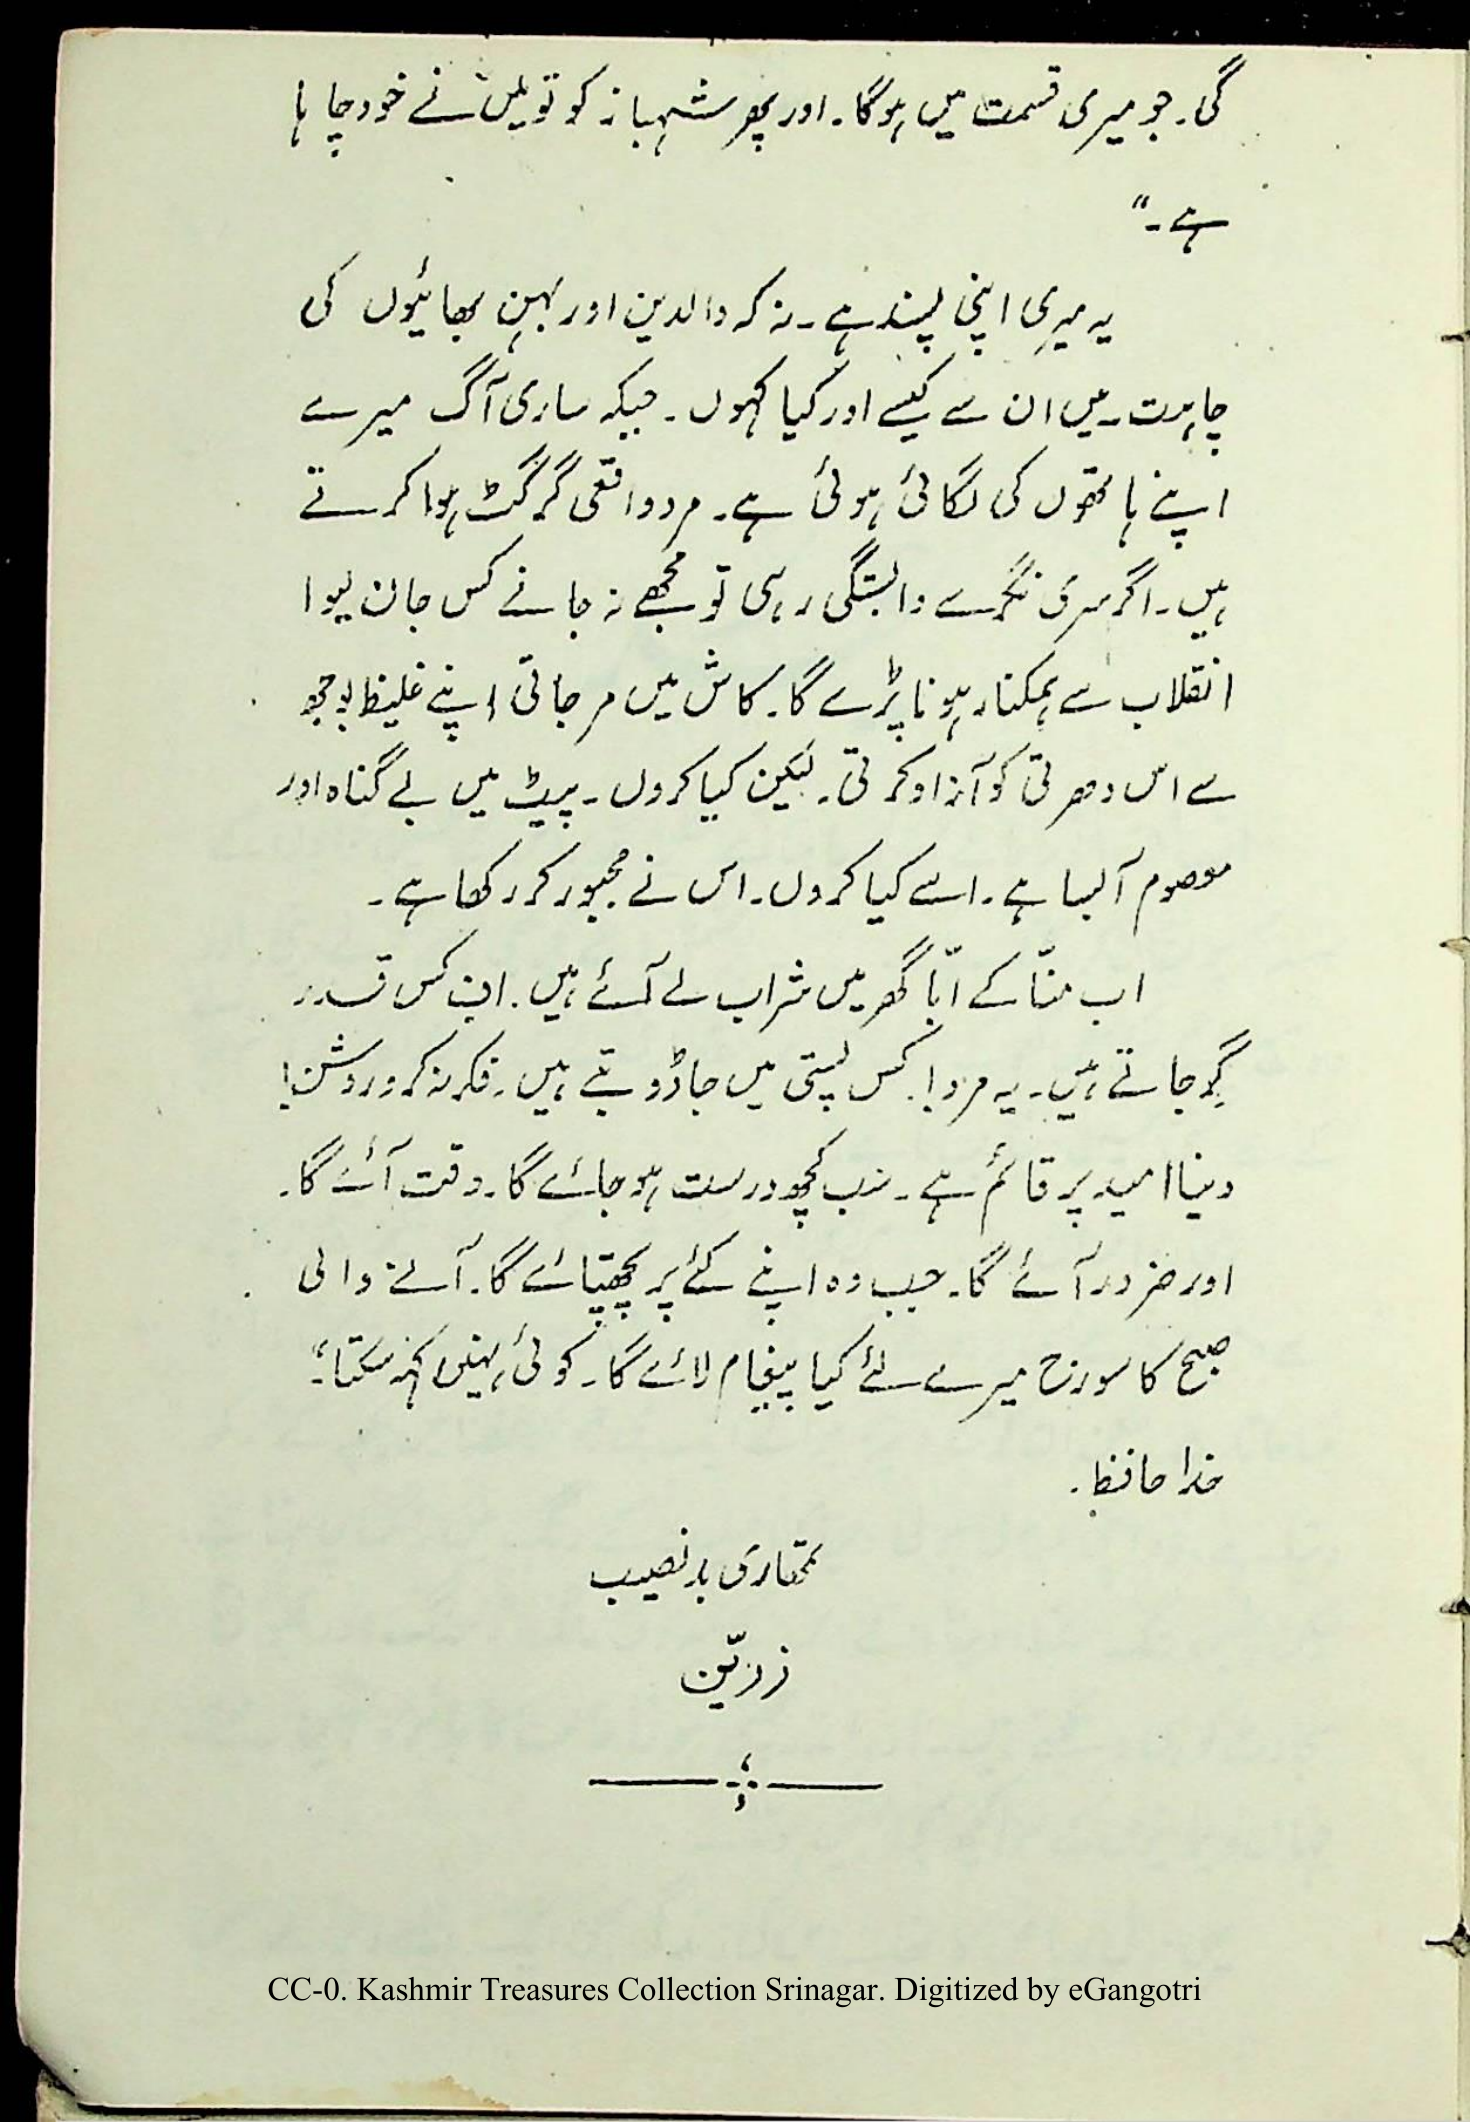 گی۔ جو میری قسمت میں ہوگا۔ اور پھر شہباز کو تو میں نے خود چاہا
ہے۔"
یہ میری اپنی پسند ہے۔ نہ کہ والدین اور بہن بھائیوں کی
چاہت۔ میں ان سے کیسے اور کیا کہوں۔ جبکہ ساری آگ میرے
اپنے ہاتھوں کی لگائی ہوئی ہے۔ مرد واقعی گرگٹ ہوا کرتے
ہیں۔ اگر سری نگر سے وابستگی رہی تو مجھے نہ جانے کس جان لیوا
انقلاب سے ہمکنار ہونا پڑے گا۔ کاش میں مر جاتی اپنے غلیظ بوجھ
سے اس دھرتی کو آزاد کرتی۔ لیکن کیا کروں۔ پیٹ میں بے گناہ اور
معصوم آ بسا ہے۔ اسے کیا کروں۔ اس نے مجبور کر رکھا ہے۔
اب منّا کے ابّا گھر میں شراب لے آئے ہیں۔ اف کس قدر
گِر جاتے ہیں۔ یہ مرد! کس پستی میں جا ڈوبتے ہیں۔ فکر نہ کرو روشن!
دنیا امید پر قائم ہے۔ سب کچھ درست ہو جائے گا۔ وقت آئے گا۔
اور ضرور آئے گا۔ جب وہ اپنے کئے پر پچھتائے گا۔ آنے والی
صبح کا سورج میرے لئے کیا پیغام لائے گا۔ کوئی نہیں کہہ سکتا۔"
خدا حافظ۔
تمھاری بد نصیب
زریّن
CC-0. Kashmir Treasures Collection Srinagar. Digitized by eGangotri